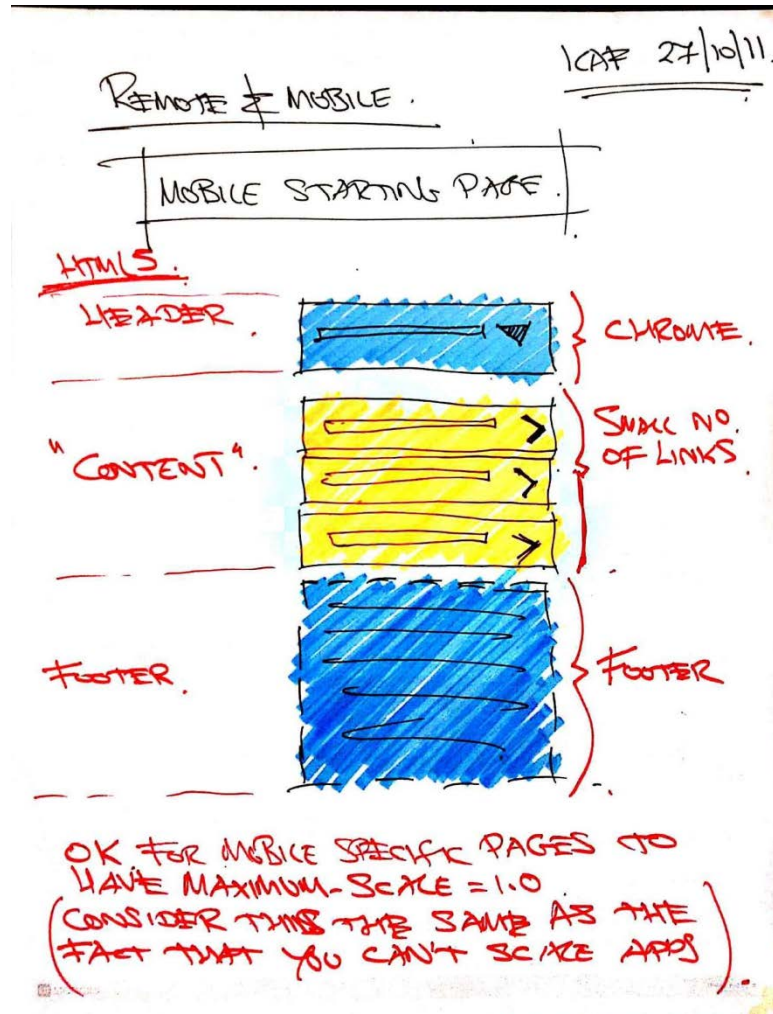 ICAF 27/10/11.
REMOTE & MOBILE.
MOBILE STARTING PAGE.
HTML5.
HEADER.
CHROME.
"CONTENT".
SMALL NO.
OF LINKS.
FOOTER.
FOOTER
OK FOR MOBILE SPECIFIC PAGES TO
HAVE MAXIMUM-SCALE = 1.0
(CONSIDER THIS THE SAME AS THE
FACT THAT YOU CAN'T SCALE APPS).